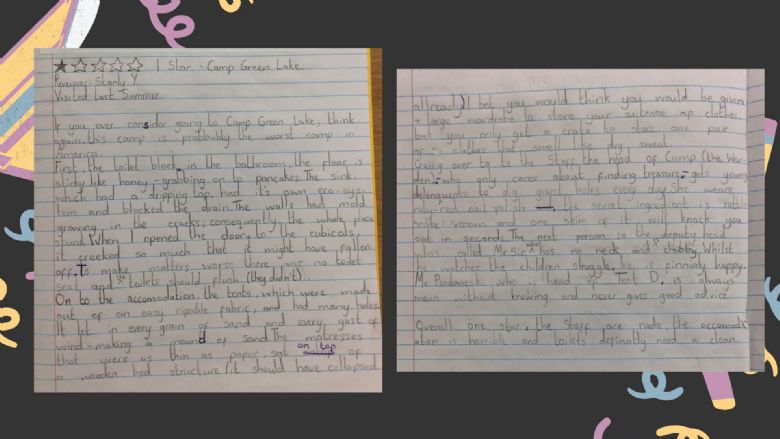 ★☆☆☆☆ 1 Star. - Camp Green Lake
Reviewer: Stanly Y.
Visited: Last Summer.
If you ever consider going to Camp Green Lake, think
again, this camp is probbably the worst camp in
America.
First, the toilet block, in the bathroom, the floor is
sticky like honey grabbing on to pancakes. The sink,
which had a dripping tap, had it's own eco-sys-
tem and blocked the drain. The walls had mold
growing in the cracks; consequently, the whole place
stunk. When I opened the doors to the cubicals,
it creeked so much that it might have fallen
off. To make matters worse there was no toilet
seat and toilets should flush (they didn't).
On to the accomodation, the tents, which were made
out of an easy ripable fabric, and had many holes.
It let in every grain of sand and every gust of
wind - making a mound of sand. The matresses
that were as thin as paper, sat on top of
a wooden bed structure (it should have collapsed
allready) I bet you would think you would be given
a large wardrobe to store your suitcase of clothes,
but you only get a crate to store one pair
of clothes that smell like dry sweat.
Going over to the Staff, the head of Camp (the War-
den) - who only cares about finding treasure - gets young
delinquents to dig giant holes every day. She wears
ruby-red nail polish, the secret ingredient is rattle
snake venom and one skim of it will knack you
out in seconds. The next person is the deputy head
who's called Mr Sir, who has no neck and is chubby. Whilst
he watches the children struggle, he is finnialy happy.
Mr Pendanski who is head of Tent D, is always
mean without knowing and never gives good advice
Overall one star, the staff are rude, the accamod-
ation is horrible and toilets definally need a clean.